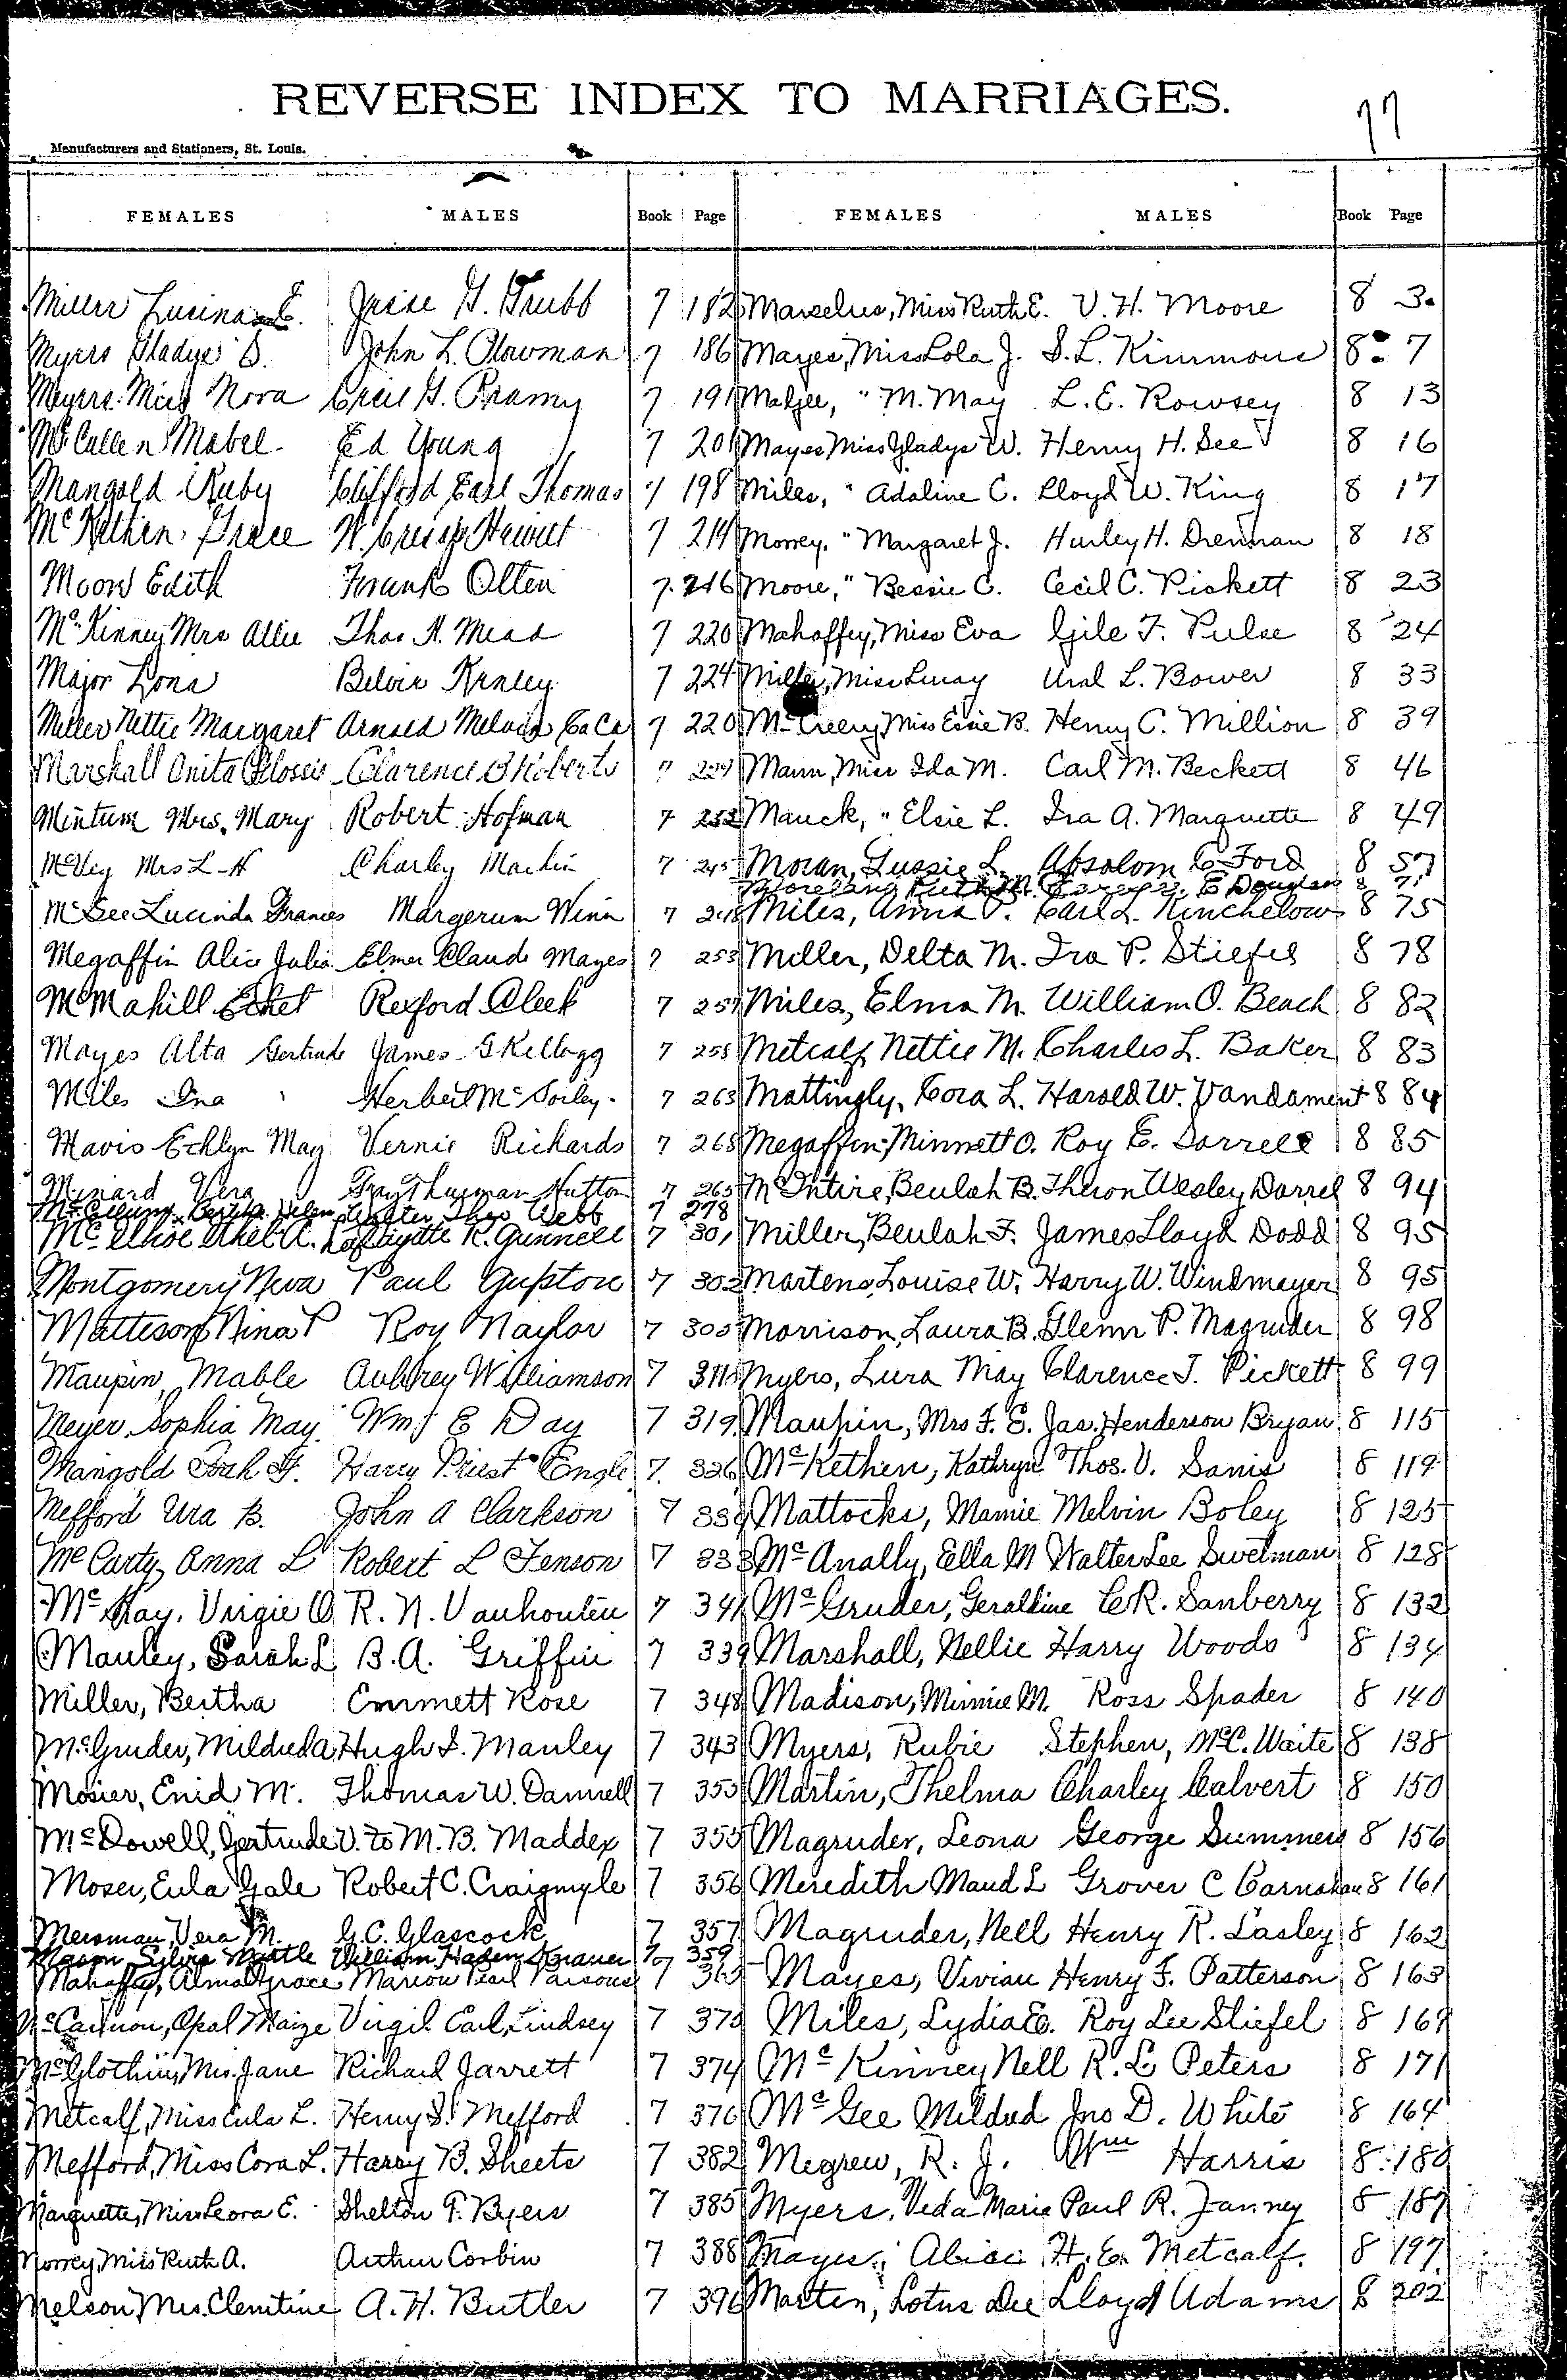 REVERSE INDEX TO MARRIAGES.
77
Manufacturers and Stationers, St. Louis.
FEMALES MALES Book Page FEMALES MALES Book Page
Miller Lucina E. Jesse G. Grubb 7 182
Myers Gladys D. John L. Plowman 7 186
Meyers Miss Nora Cecil G. 7 191
McCullen Mabel Ed Young 7 201
Mangold Ruby Clifford Earl Thomas 7 198
McKethen Grace W. Crisp Hewitt 7 214
Moore Edith Frank Olten 7 216
McKinney Mrs Allie Thos H. Mead 7 220
Major Lona 7 224
Miller Nettie Margaret Arnold Melvin 7 220
Marshall Onita Flossie Clarence B Roberts "
Minturn Mrs. Mary Robert Hofman 7 232
McVey Mrs L H Charley Machin 7 245
McGee Lucinda Frances Margerum Winn 7 248
Megaffin Alice Julia Elmer Claude Mayes 7 253
McMahill Ethel Rexford Cleek 7 257
Mayes Alta Gertrude James G Kellogg 7 258
Miles Ina Herbert McSorley 7 263
Mavis Echlyn May Vernie Richards 7 268
Minard Vera Guy Thurman Hutton 7 265
Bertha Helen Walter Theo Webb 7 278
Ethel A. Lafayette R. Gunnell 7 301
Montgomery Neva Paul Gupton 7 302
Matteson Nina P Roy Naylor 7 305
Maupin, Mable Aubrey Williamson 7 311
Meyer Sophia May Wm E Day 7 319
Mangold H. Harry Priest Engle 7 326
Mefford Ura B. John A Clarkson 7 339
McCarty, Anna L Robert L Fenson 7 333
McKay, Virgie O. R. N. Vanhouten 7 341
Manley, Sarah L B. A. Griffin 7 339
Miller, Bertha Emmett Rose 7 348
McGruder, Mildred A Hugh I. Manley 7 343
Mosier, Enid M. Thomas W. Dannell 7 353
McDowell, Gertrude V. to M. B. Maddex 7 355
Moser, Eula Gale Robert C. Craigmyle 7 356
Mersman, Vera M. G. C. Glascock 7 357
Mason Sylvia Myrtle William Haden 7 359
Mahaffey, Alma Grace Marion Pearl Parsons 7 365
McCannon, Opal Maize Virgil Earl Lindsey 7 370
McGlothin, Mrs. Jane Richard Jarrett 7 374
Metcalf, Miss Eula L. Henry S. Mefford 7 376
Mefford, Miss Cora L. Harry B. Sheets 7 382
Marquette, Miss Leora E. Shelton F. Byers 7 385
Morrey, Miss Ruth A. Arthur Corbin 7 388
Melson, Mrs. Clemtine A. H. Butler 7 396
Marcelius, Miss Ruth E. V. H. Moore 8 3
Mayes, Miss Lola J. S. L. Kimmons 8 7
McGee, " M. May L. E. Rowsey 8 13
Mayes Miss Gladys W. Henry H. See 8 16
Miles, " Adaline C. Lloyd W. King 8 17
Morrey, " Margaret J. Hurley H. Drennan 8 18
Moore, " Bessie C. Cecil C. Pickett 8 23
Mahaffey, Miss Eva Gile F. Pulse 8 24
Miller, Miss Luray Ural L. Bower 8 33
McCreery, Miss Essie B. Henry C. Million 8 39
Mann, Miss Ida M. Carl M. Beckett 8 46
Mauck, " Elsie L. Ira A. Marquette 8 49
Moran, Gussie L. Absolom C Ford 8 57
Moreland Ruth M. E Douglas 8 71
Miles, Anna P. Earl L. Kinchelow 8 75
Miller, Delta M. Ira P. Stiefel 8 78
Miles, Elma M. William O. Beach 8 82
Metcalf, Nettie M. Charles L. Baker 8 83
Mattingly, Cora L. Harold W. Vandament 8 84
Megaffin, Minnett O. Roy E. Sorrell 8 85
McIntire, Beulah B. Theron Wesley Darrel 8 94
Miller, Beulah F. James Lloyd Dodd 8 95
Martens, Louise W. Harry W. Windmeyer 8 95
Morrison, Laura B. Glenn P. Magruder 8 98
Myers, Lura May Clarence J. Pickett 8 99
Maupin, Mrs F. E. Jas. Henderson Bryan 8 115
McKethen, Kathryn Thos. V. Sanis 8 119
Mattocks, Mamie Melvin Boley 8 125
McAnally, Ella M Walter Lee Swetman 8 128
McGruder, Geraldine C. R. Sanberry 8 132
Marshall, Nellie Harry Woods 8 134
Madison, Minnie M. Ross Spader 8 140
Myers, Rubie Stephen, McC. Waite 8 138
Martin, Thelma Charley Calvert 8 150
Magruder, Leona George Summers 8 156
Meredith Maud L Grover C Carnahan 8 161
Magruder, Nell Henry R. Lasley 8 162
Mayes, Vivian Henry F. Patterson 8 163
Miles, Lydia E. Roy Lee Stiefel 8 169
McKinney Nell R. L Peters 8 171
McGee Mildred Jno D. White 8 164
Megrew, R. J. Wm Harris 8 180
Myers, Veda Marie Paul R. Janney 8 187
Mayes, Alice H. E. Metcalf. 8 197
Martin, Lotus Dee Lloyd Adams 8 202